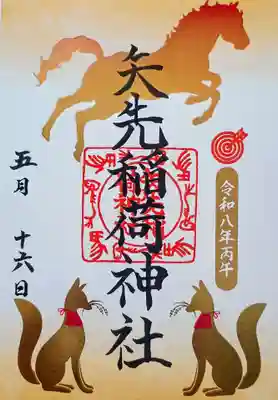 令和八年丙午
矢先稲荷神社
五月 十六日